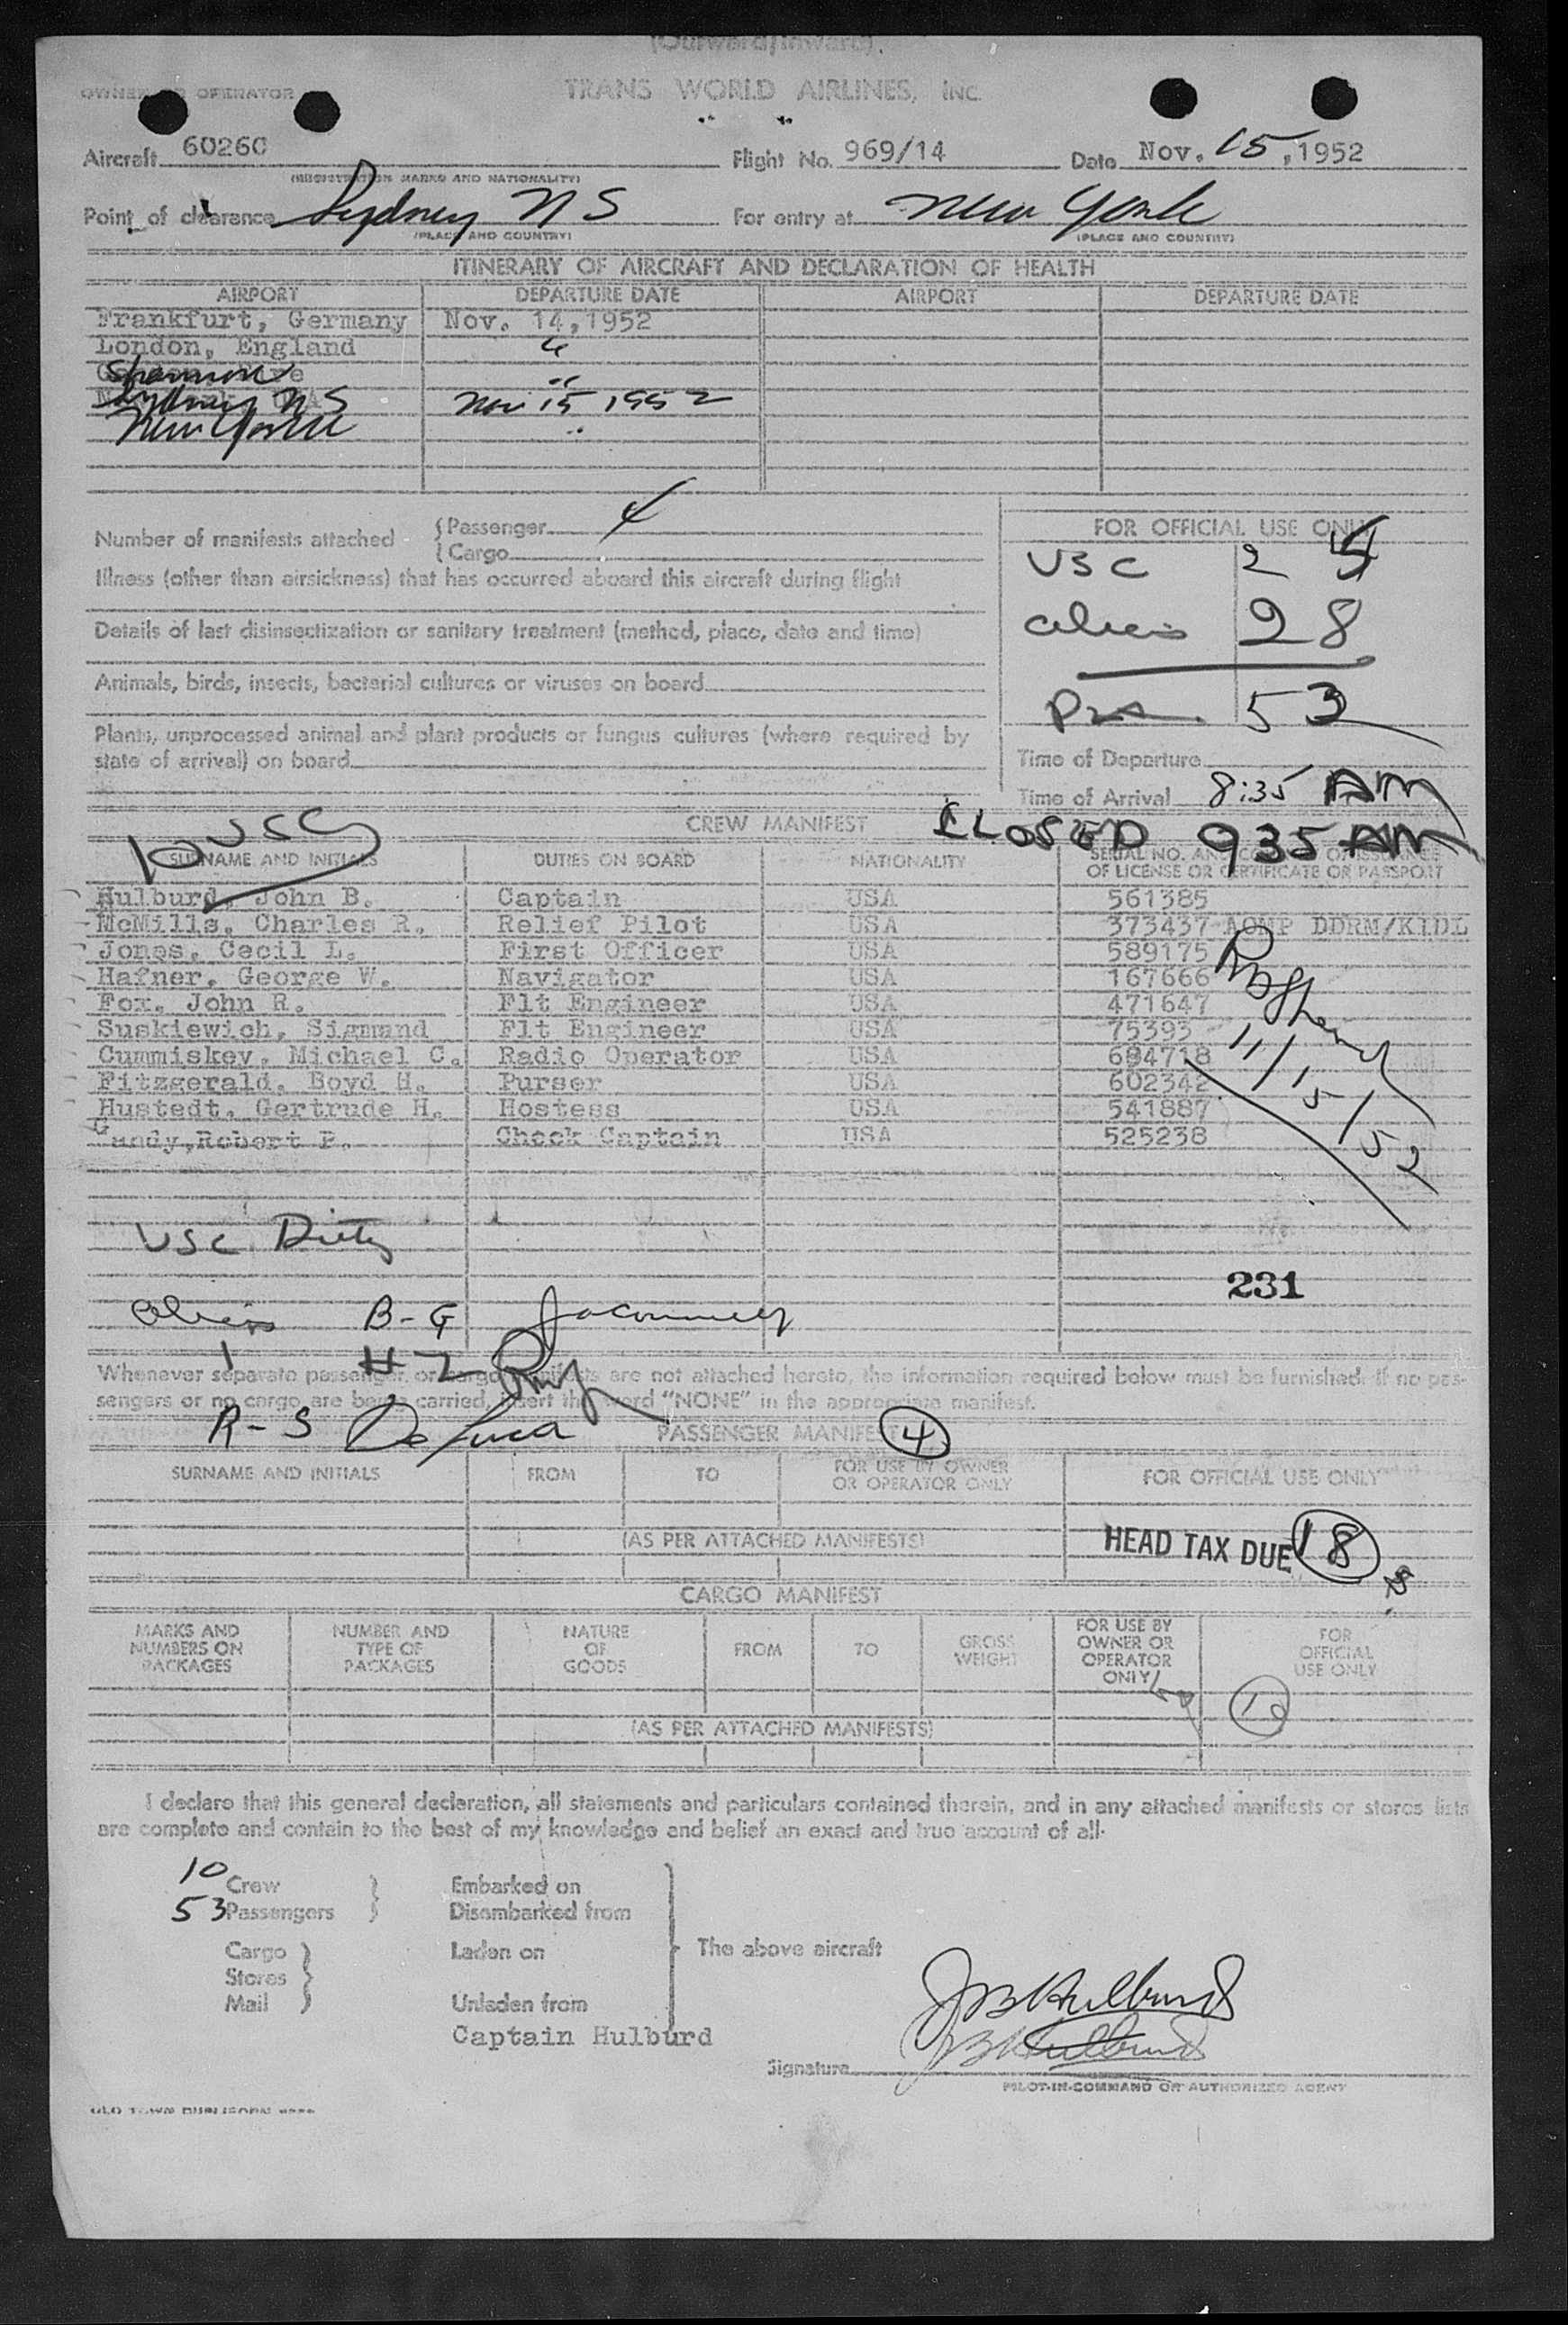 (Outward/Inward)
OWNER OR OPERATOR TRANS WORLD AIRLINES, INC.
Aircraft 6026C Flight No. 969/14 Date Nov. 15, 1952
(REGISTRATION MARKS AND NATIONALITY)
Point of clearance Sydney NS For entry at New York
(PLACE AND COUNTRY) (PLACE AND COUNTRY)
ITINERARY OF AIRCRAFT AND DECLARATION OF HEALTH
AIRPORT DEPARTURE DATE AIRPORT DEPARTURE DATE
Frankfurt, Germany Nov. 14,1952
London, England "
Shannon "
Sydney NS Nov 15 1952
New York "
Number of manifests attached { Passenger 4
{ Cargo
FOR OFFICIAL USE ONLY
USC 24
Illness (other than airsickness) that has occurred aboard this aircraft during flight
aliens 28
Details of last disinsectization or sanitary treatment (method, place, date and time)
Animals, birds, insects, bacterial cultures or viruses on board
53
Plants, unprocessed animal and plant products or fungus cultures (where required by
state of arrival) on board
Time of Departure
Time of Arrival 8:35 AM
10 USC CREW MANIFEST CLOSED 935 AM
SURNAME AND INITIALS DUTIES ON BOARD NATIONALITY SERIAL NO. AND COUNTRY OF ISSUANCE
OF LICENSE OR CERTIFICATE OR PASSPORT
Hulburd, John B. Captain USA 561385
McMills, Charles R. Relief Pilot USA 373437
Jones, Cecil L. First Officer USA 589175
Hafner, George W. Navigator USA 167666
Fox, John R. Flt Engineer USA 471647
Suskiewich, Sigmund Flt Engineer USA 75393
Cummiskey, Michael C. Radio Operator USA 684718
Fitzgerald, Boyd H. Purser USA 602342
Hustedt, Gertrude H. Hostess USA 541887
Gandy,Robert P. Check Captain USA 525238
11/15/52
USC
231
aliens B-G
H-Z
Whenever separate passenger or cargo manifests are not attached hereto, the information required below must be furnished. If no pas-
sengers or no cargo are being carried, insert the word "NONE" in the appropriate manifest.
R-S De Luca PASSENGER MANIFEST 4
SURNAME AND INITIALS FROM TO FOR USE BY OWNER
OR OPERATOR ONLY FOR OFFICIAL USE ONLY
(AS PER ATTACHED MANIFESTS) HEAD TAX DUE 18
CARGO MANIFEST
MARKS AND
NUMBERS ON
PACKAGES NUMBER AND
TYPE OF
PACKAGES NATURE
OF
GOODS FROM TO GROSS
WEIGHT FOR USE BY
OWNER OR
OPERATOR
ONLY FOR
OFFICIAL
USE ONLY
(AS PER ATTACHED MANIFESTS)
I declare that this general declaration, all statements and particulars contained therein, and in any attached manifests or stores lists
are complete and contain to the best of my knowledge and belief an exact and true account of all.
10 Crew } Embarked on
53 Passengers } Disembarked from
Cargo } Laden on The above aircraft
Stores
Mail Unladen from
JB Hulburd
Captain Hulburd
JB Hulburd
Signature
PILOT-IN-COMMAND OR AUTHORIZED AGENT